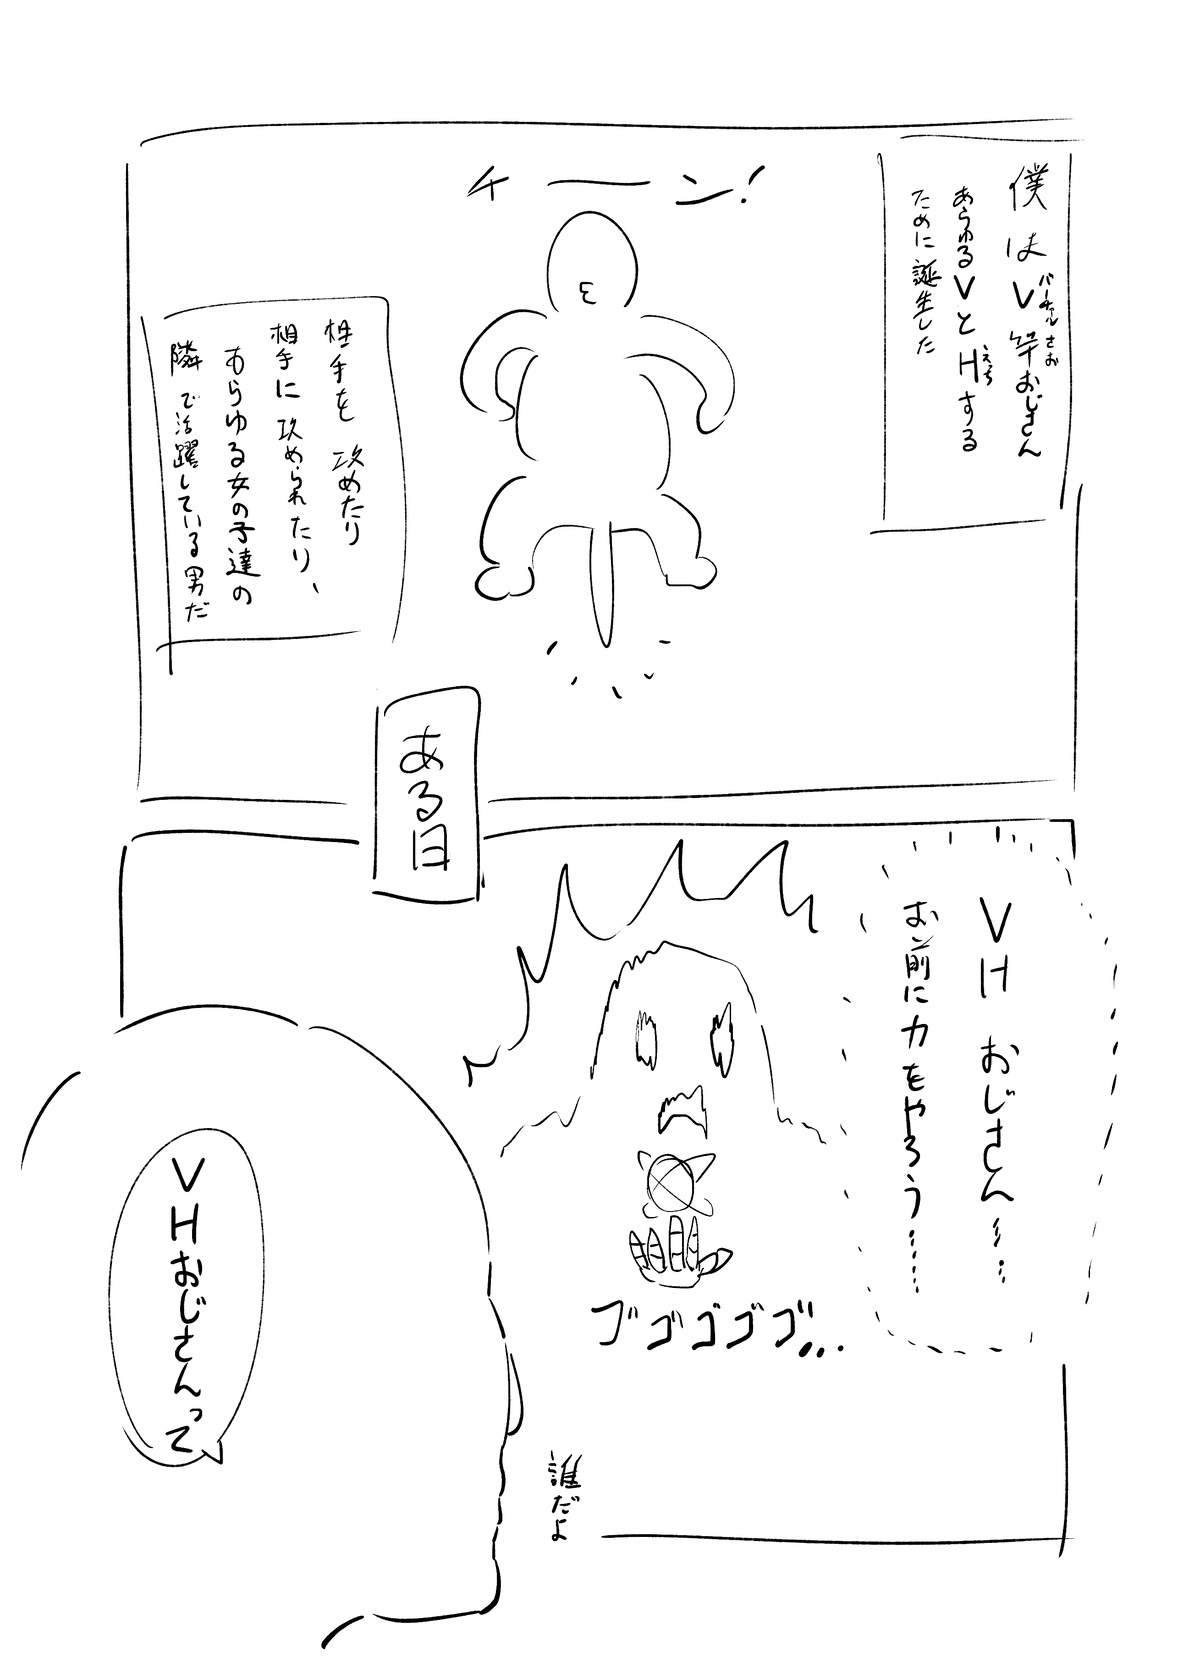 僕はV竿おじさん
バーチャルさお
あらゆるVとHする
えっち
ために誕生した
チーン!
相手を攻めたり
相手に攻められたり、
あらゆる女の子達の
隣で活躍している男だ
ある日
VHおじさん…
お前に力をやろう……
ゴゴゴゴゴ…
VHおじさんって
誰だよ